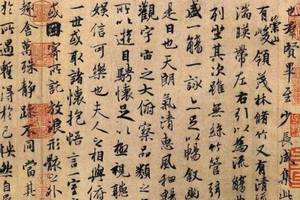 也群賢畢至少長咸集此
有崇山峻領茂林脩竹又有清流
湍暎帶左右引以為流觴
列坐其次雖無絲竹管弦
盛一觴一詠亦足以暢敘幽
是日也天朗氣清惠風和暢
觀宇宙之大俯察品類之
所以遊目騁懷足以極視聽
娛信可樂也夫人之相與俯
一世或取諸懷抱悟言一室之
或因寄所託放浪形骸之外
趣舍萬殊靜躁不同當其
於所遇蹔得於己快然自